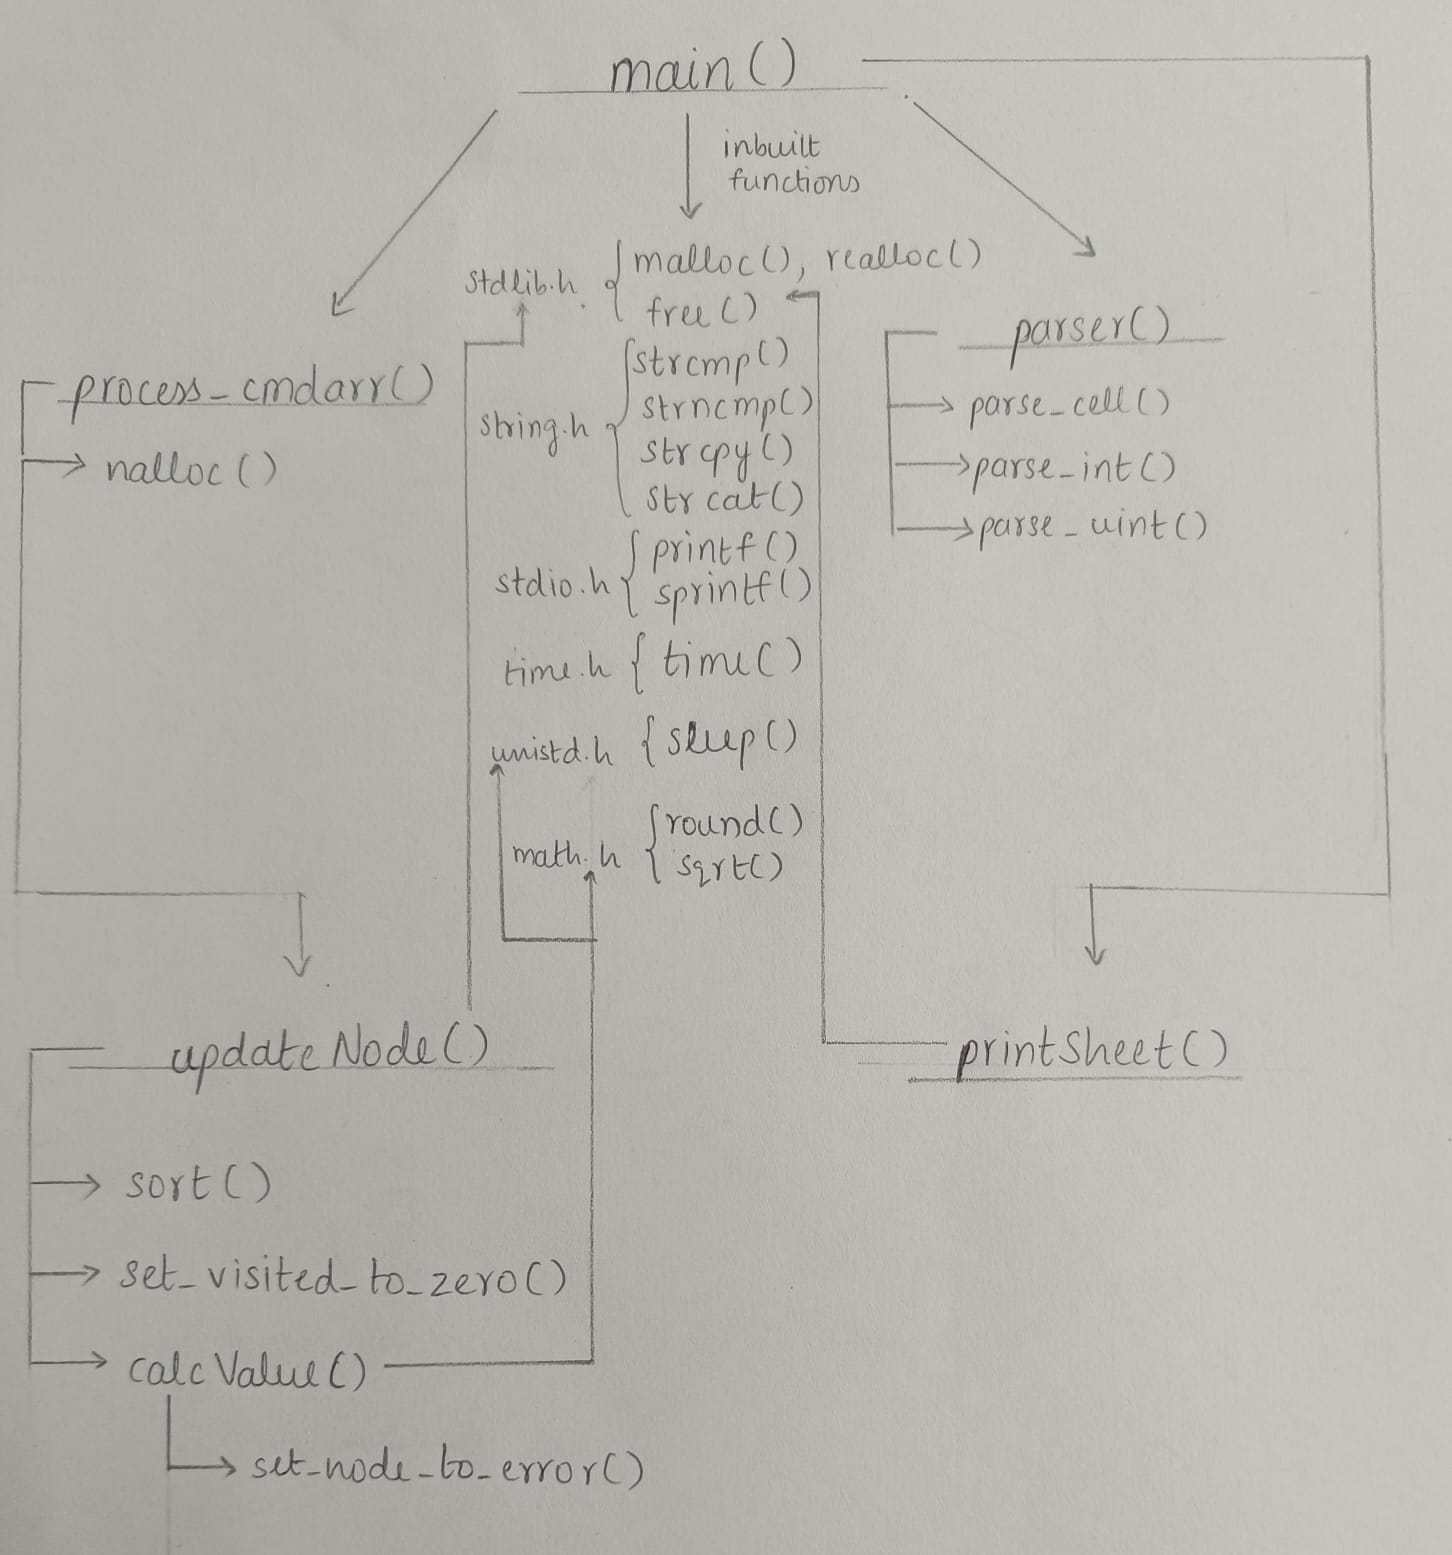 main()
inbuilt
functions
stdlib.h { malloc(), realloc()
free()
string.h { strcmp()
strncmp()
strcpy()
strcat()
stdio.h { printf()
sprintf()
time.h { time()
unistd.h { sleep()
math.h { round()
sqrt()
process_cmdarr()
nalloc()
parser()
parse_cell()
parse_int()
parse_uint()
updateNode()
sort()
set_visited_to_zero()
calcValue()
set_node_to_error()
printSheet()